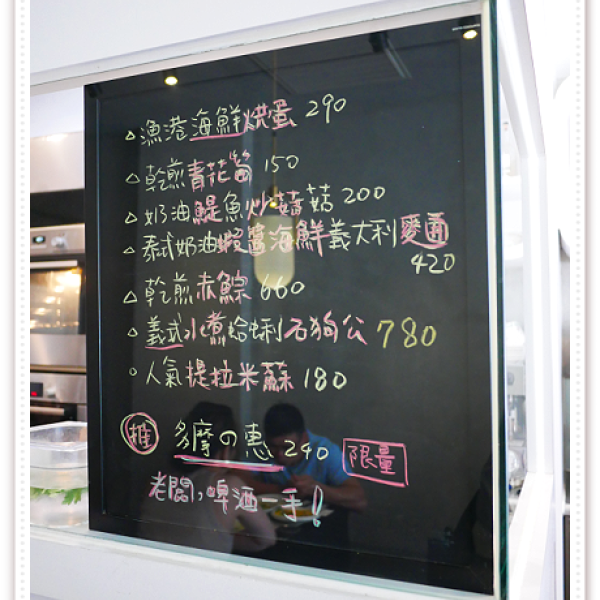 △漁港海鮮烘蛋 290
△乾煎青花筍 150
△奶油鯷魚炒蘑菇 200
△泰式奶油蝦醬海鮮義大利麵
420
△乾煎赤鯮 660
△義式水煮蛤蜊石狗公 780
○人氣提拉米蘇 180
推 多摩の惠 240 限量
老闆，啤酒一手！